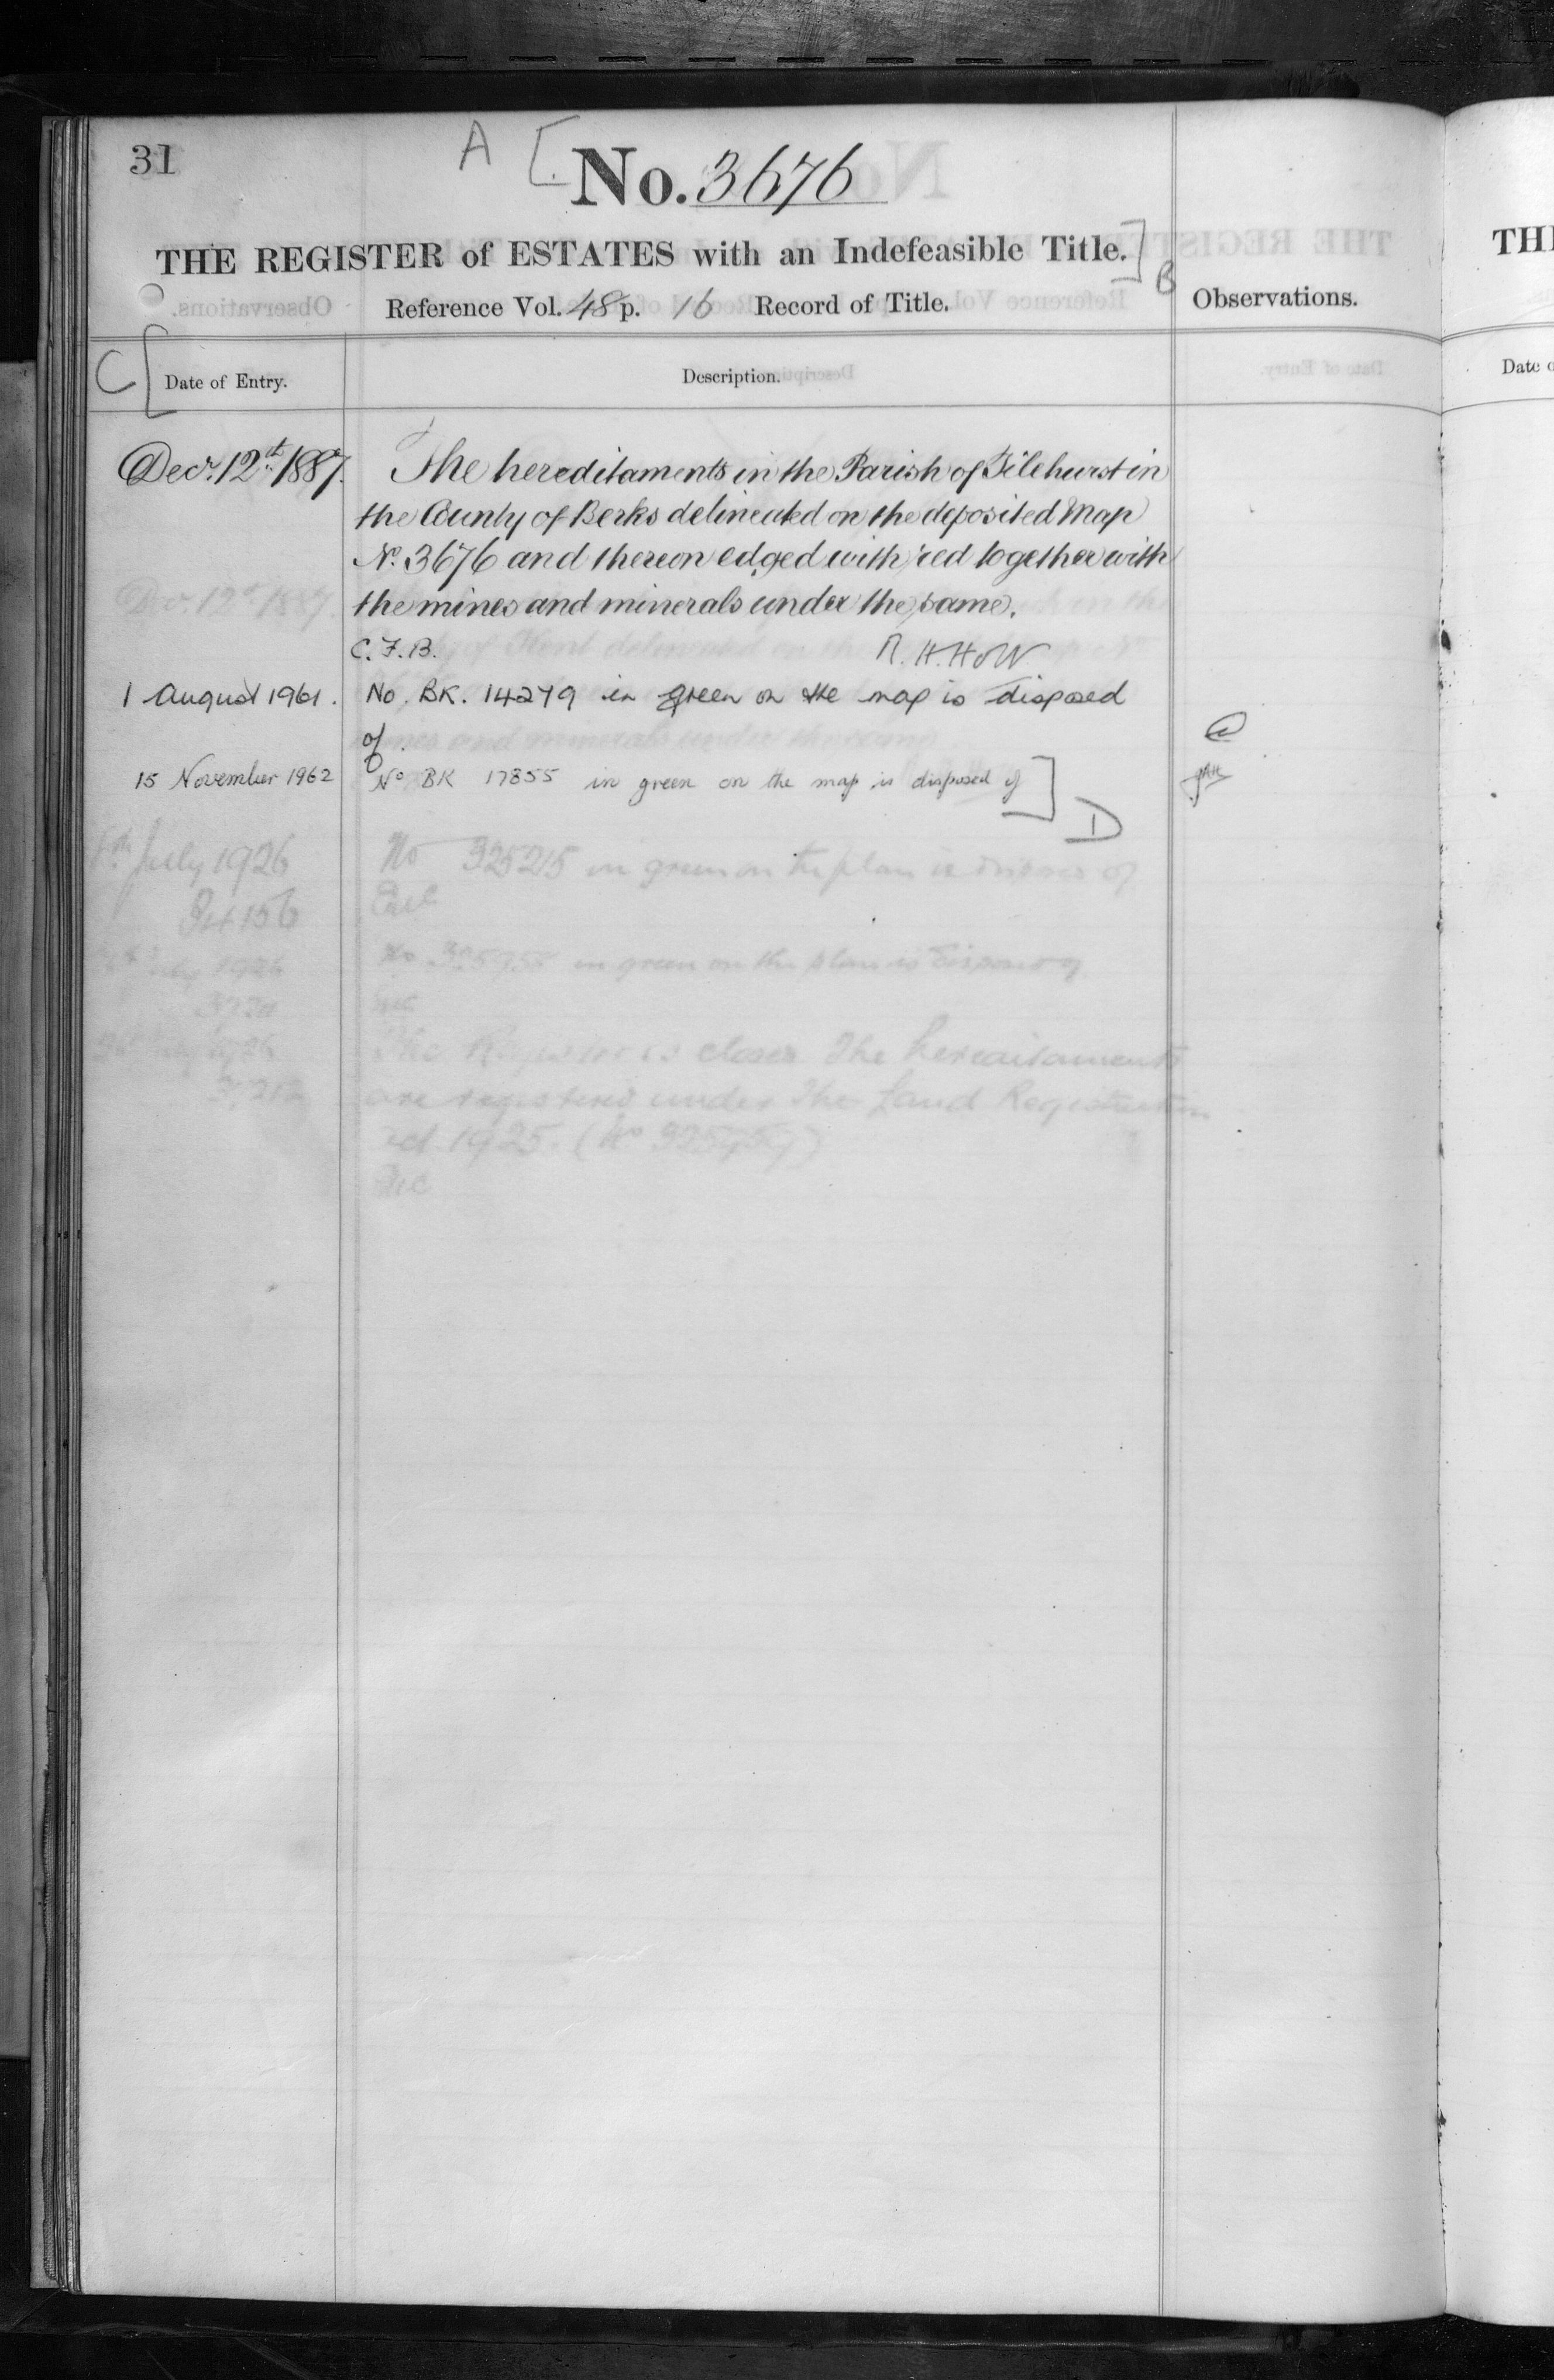 31
A [
No. 3676
THE REGISTER of ESTATES with an Indefeasible Title. ]
B
Reference Vol. 48 p. 16 Record of Title.
Observations.
C [
Date of Entry.
Description.
Decr. 12th 1887.
The hereditaments in the Parish of Tilehurst in
the County of Berks delineated on the deposited Map
No. 3676 and thereon edged with red together with
the mines and minerals under the same.
C.F.B. R.H. HOW
1 August 1961. No. BK. 14279 in green on the map is disposed
of.
15 November 1962 No BK 17855 in green on the map is disposed of ]
D
July 1926 No 325215 in green on the plan is disposed of
July 1926 in green on the plan is disposed of
1926 The Register is closed The hereditaments
are registered under The Land Registration
Act 1925.
TH
Date o